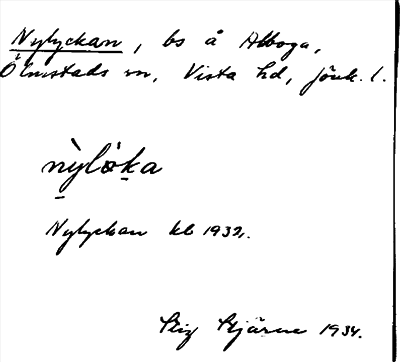 Nylyckan, bs å Alboga,
Ölmstads sn, Vista hd, Jönk. l.
nỳlò̱ka
Nylyckan kb 1932.
Stig Stjärne 1934.